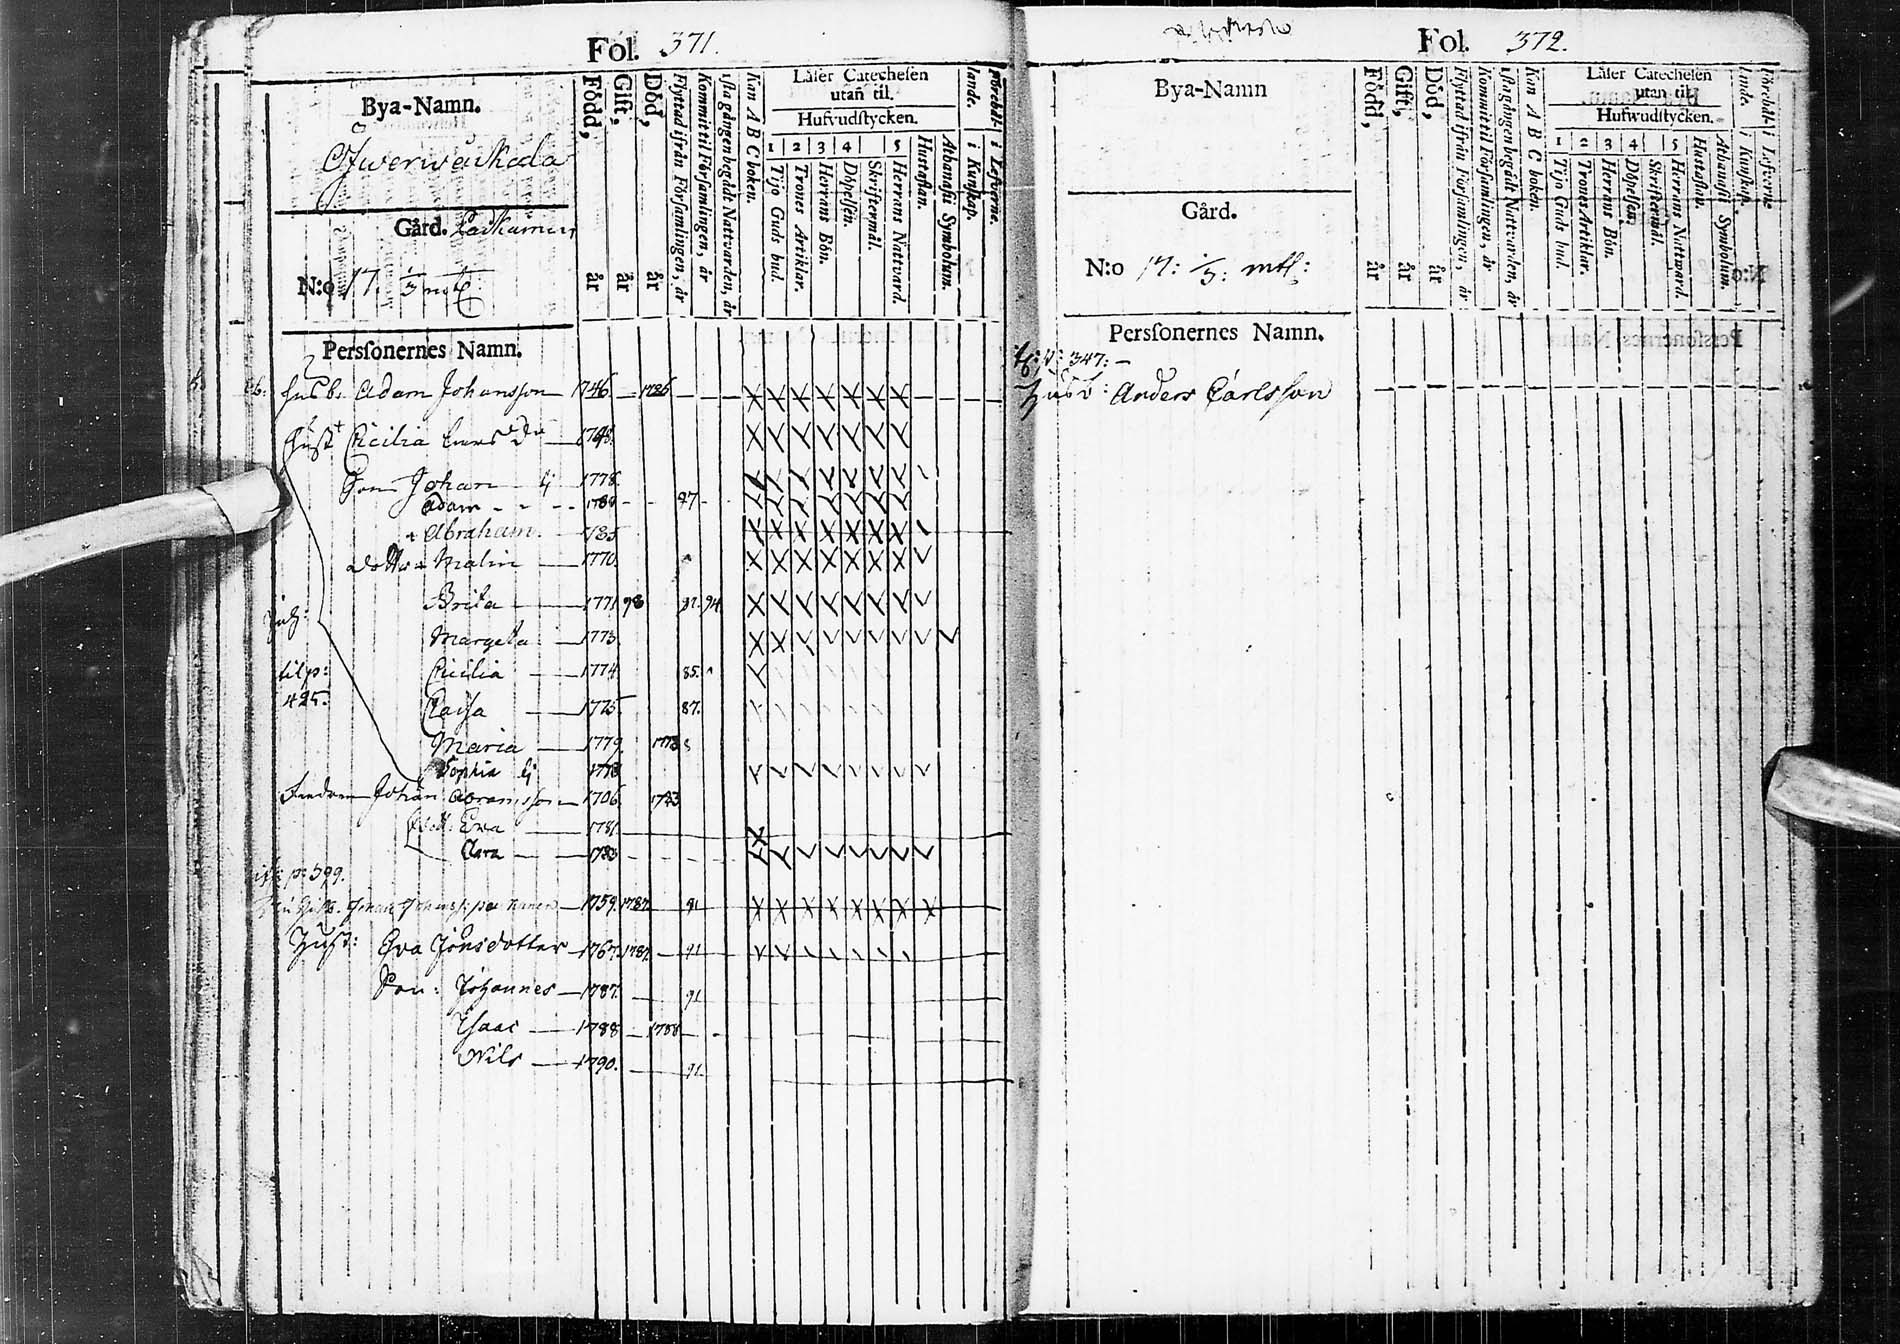 Fol. 371.
Bya-Namn.
Öfwerwäskala
Gård.
N:o 17. 1/3 mtl
Född, år
Gift, år
Död, år
Flyttad ifrån Församlingen, år
Kommit til Församlingen, år
1sta gången begådt Nattvarden, år
Kan A B C boken.
Läser Catechesen
utan til.
Hufvudstycken.
1 2 3 4 5
Tijo Guds bud.
Trones Artiklar.
Herrans Bön.
Döpelsen.
Skriftermål.
Herrans Nattvard.
Hustaflan.
Athanasii Symbolum.
i Kunskap.
i Lefverne.
Personernes Namn.
Husb. Adam Johansson 1746 1786
Hust Cicilia 1748.
Son Johan 1778.
Adam 1780 97
Abraham 1785
Dotter Malin 1770.
Brita 1771 98 87. 94
Margeta 1773
Cicilia 1774 85.
til p:
425.
Caisa 1775. 87.
Maria 1779. 1778
Sophia 1778
Johan Abramsson 1706. 1783
Eva 1781
Clara 1783
p: 399.
Johan 1759. 1787. 91
Hust: Eva Jönsdotter 1767. 1787. 91
Son: Johannes 1787. 91
Isaac 1788 1788
Nils 1790. 91
Fol. 372.
Bya-Namn
Gård.
N:o 17: 1/3: mtl:
Född, år
Gift, år
Död, år
Flyttad ifrån Församlingen, år
Kommit til Församlingen, år
1sta gången begådt Nattvarden, år
Kan A B C boken.
Läser Catechesen
utan til.
Hufwudstycken.
1 2 3 4 5
Tijo Guds bud.
Trones Artiklar.
Herrans Bön.
Döpelsen
Skriftermål.
Herrans Nattward.
Hustaflan.
Athanasii Symbolum.
i Kunskap.
i Lefverne
Personernes Namn.
347:
Husb: Anders Carlsson